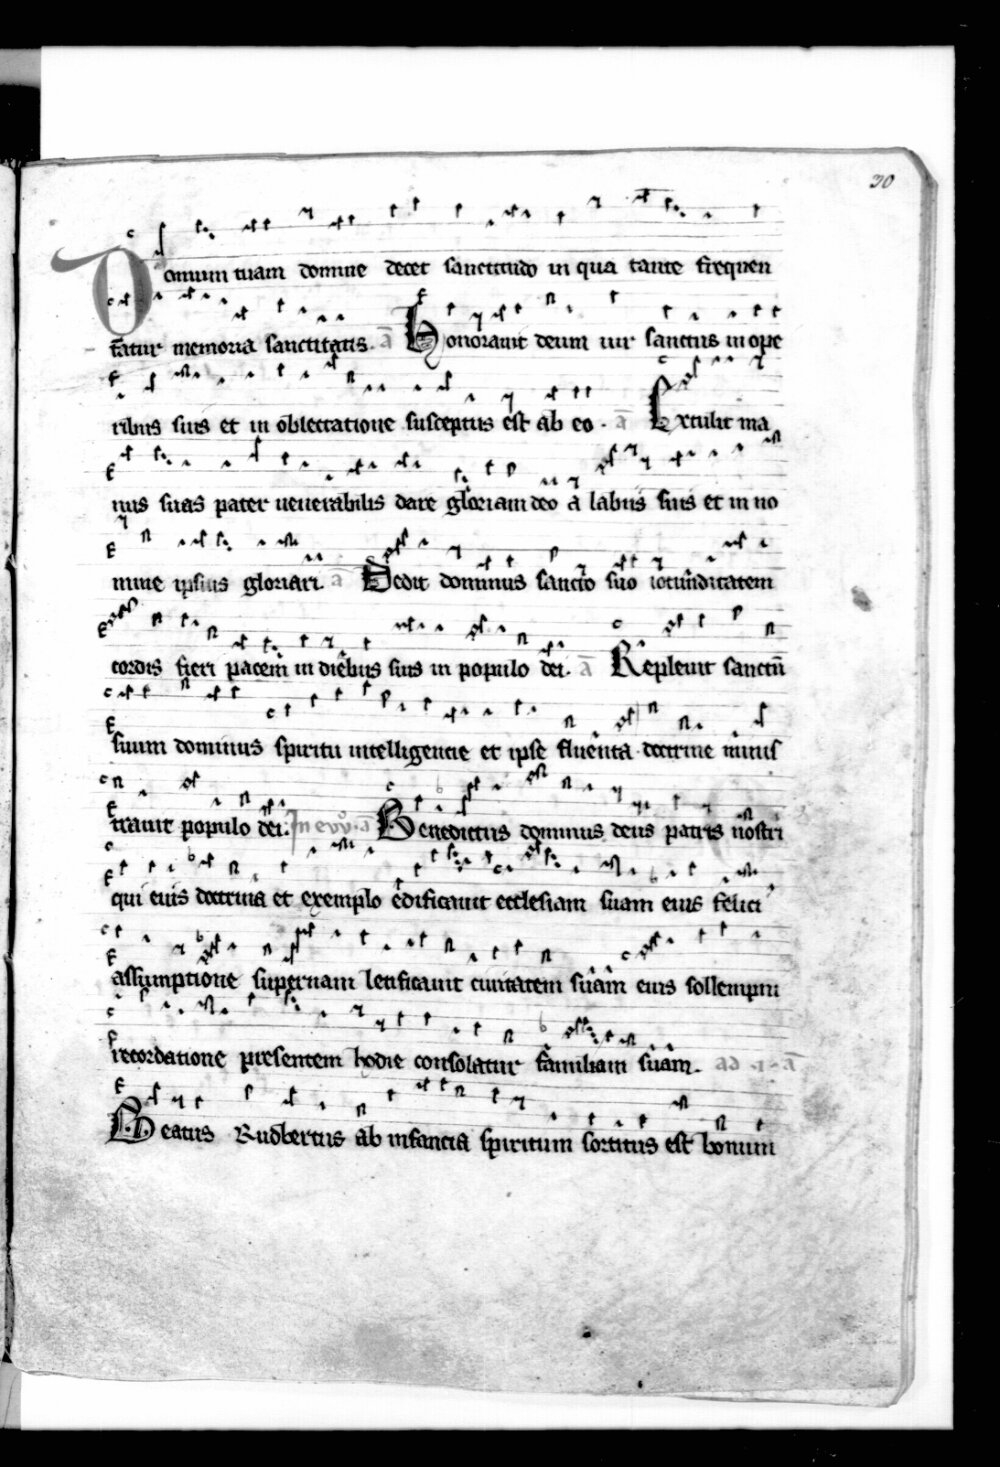 30
Domum tuam domine decet sanctitudo in qua tante frequen
tatur memoria sanctitatis. a̅ Honorauit deum uir sanctus in ope
ribus suis et in oblectatione susceptus est ab eo. a̅ Extulit ma
nus suas pater uenerabilis dare gloriam deo a labiis suis et in no
mine ipsius gloriari. a̅ Dedit dominus sancto suo iocunditatem
cordis fieri pacem in diebus suis in populo dei. a̅ Repleuit sanctu̅
suum dominus spiritu intelligencie et ipse fluenta doctrine minis
trauit populo dei. In eu̅ a̅ Benedictus dominus deus patris nostri
qui eius doctrina et exemplo edificauit ecclesiam suam eius felici
assumptione supernam letificauit ciuitatem suam eius sollempni
recordatione presentem hodie consolatur familiam suam. ad .1. a̅
Beatus Rudbertus ab infancia spiritum sortitus est bonum